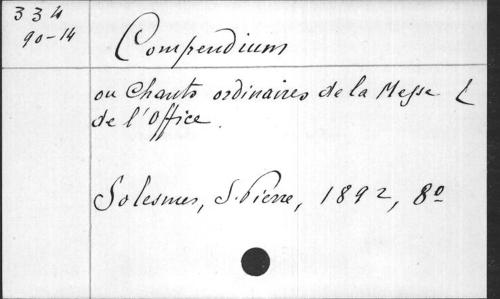 334
90-14
Compendium
ou Chants ordinaires de la Messe &
de l'Office.
Solesmes, S. Pierre, 1892, 8º